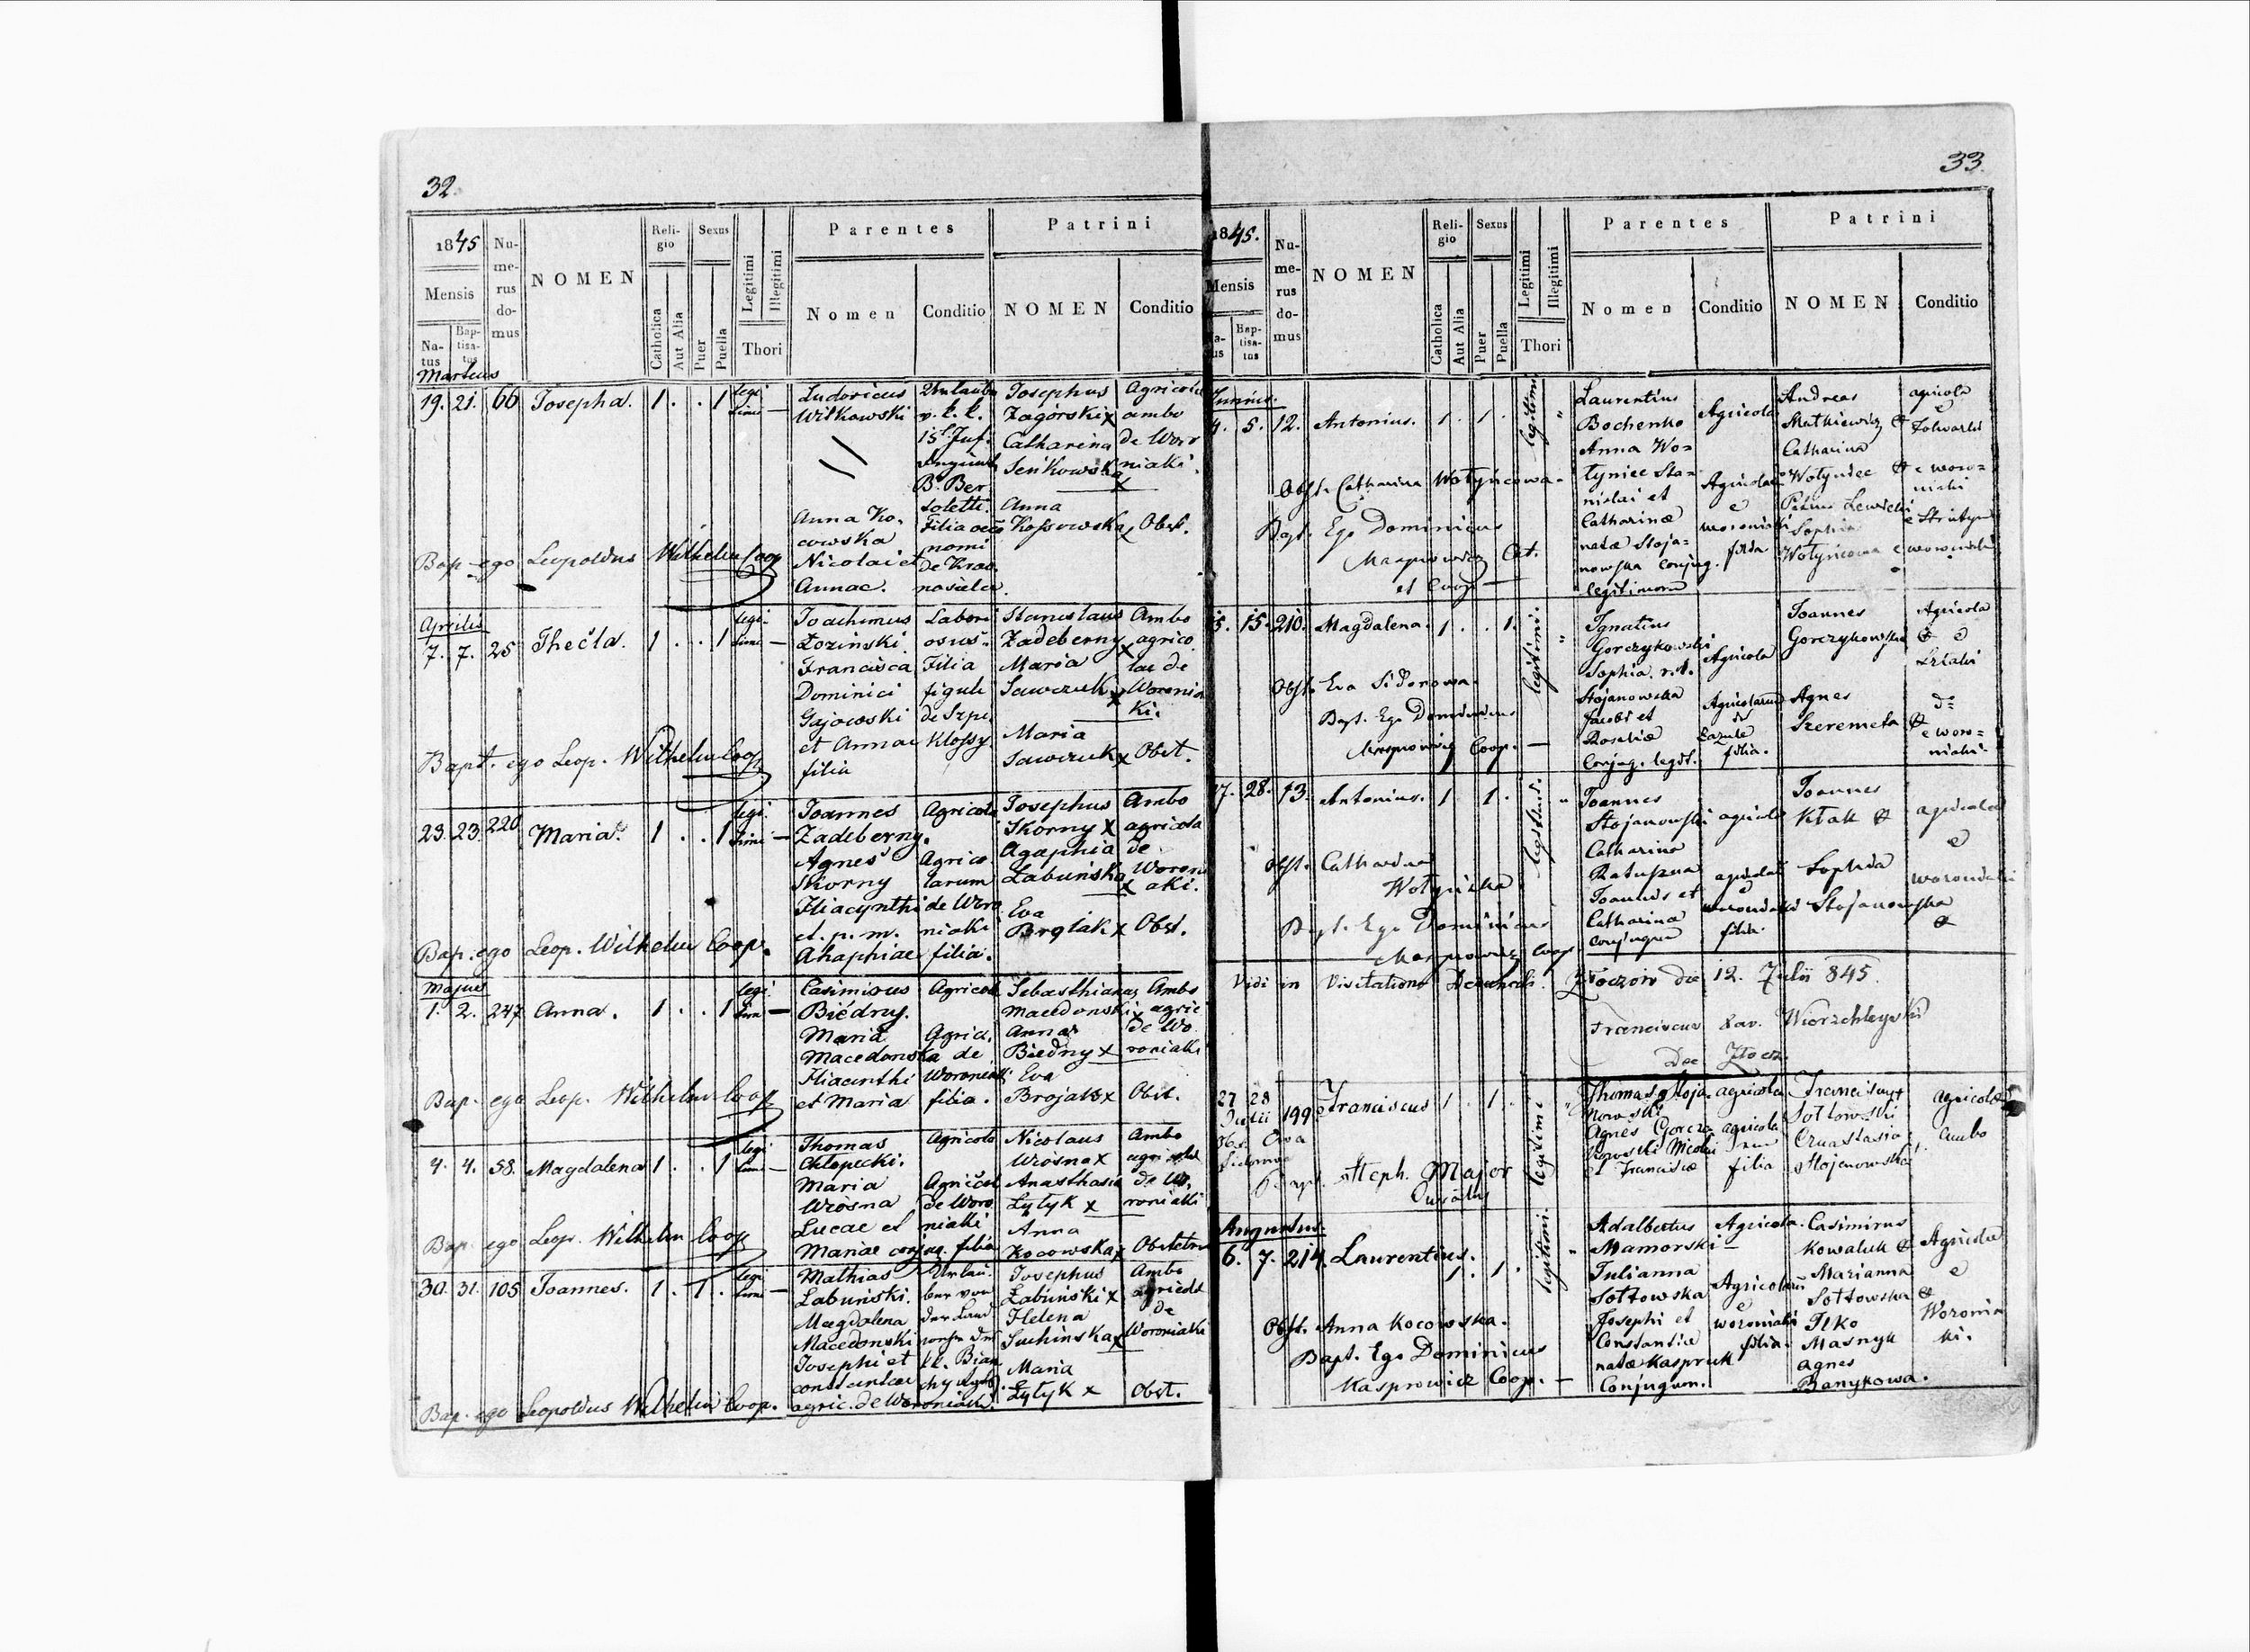 32.
1845
Mensis
Na-
tus
Bap-
tisa-
tus
Nu-
me-
rus
do-
mus
NOMEN
Reli-
gio
Catholica
Aut Alia
Sexus
Puer
Puella
Legitimi
Illegitimi
Thori
Parentes
Nomen
Conditio
Patrini
NOMEN
Conditio
Martius
19. 21. 66 Josepha. 1 . . 1 legi
timi —
Ludovicus
Witkowski
Anna Ko-
cowska
Nicolai et
Annae.
v. k. k.
15t.
B. Ber
toletti.
Filia oeco
nomi
de Kras
nosielce.
Josephus
Zagórski x
Catharina
Senkowska
x
Anna
Kossowska x
Agricolae
ambo
de Woro
niaki.
Obst.
Bap. ego Leopoldus Wilhelm Coop
Aprilis
7. 7. 25 Thecla. 1 . . 1 legi-
timi —
Joachimus
Łozinski.
Francisca
Dominici
Gajowski
et Annae
filia
Labori
osus.
Filia
figuli
de Szpi
Klossy
Stanislaus
Zadeberny
x
Maria
Sawczuk x
Maria
Sawczuk x
Ambo
agrico
lae de
Woronia
ki.
Obst.
Bapt. ego Leop. Wilhelm Coop
23. 23. 220 Maria. 1 . . 1 legi.
timi —
Joannes
Zadeberny.
Agnes
Skorny
Hiacynthi
et p. m.
Ahaphiae
Agricola
Agrico
larum
de Woro
niaki
filia.
Josephus
Skorny x
Agaphia
Łabuńska
x
Eva
Brojak x
Ambo
agricola
de
Woroni
aki.
Obst.
Bap. ego Leop. Wilhelm Coop.
Majus
1. 2. 247 Anna. 1 . . 1 legi.
timi —
Casimirus
Biedny.
Maria
Macedonska
Hiacinthi
et Maria
Agricola
Agric.
de
Woroniaki
filia.
Sebasthianus
Macedonski x
Anna
Biedny x
Eva
Brojak x
Ambo
agric
de Wo
roniaki
Obst.
Bap. ego Leop. Wilhelm Coop
4. 4. 58. Magdalena 1 . . 1 legi
timi —
Thomas
Chłopecki.
Maria
Wrósna
Lucae et
Mariae conjug. filia
Agricola
Agricol
de Woro
niaki
Nicolaus
Wrósna x
Anasthasia
Łytyk x
Anna
Kocowska x
Ambo
agricolae
de Wo
roniaki
Obstetri
Bap. ego Leop. Wilhelm Coop
30. 31. 105 Joannes. 1 . 1 . legi
timi —
Mathias
Łabuński.
Magdalena
Macedonski
Josephi et
constantiae
agric. de Woroniaki.
Urlau-
ber von
der Land
Josephus
Łabuński x
Helena
Suchinska x
Maria
Łytyk x
Ambo
agricolae
de
Woroniaki
Obst.
Bap. ego Leopoldus Wilhelm Coop.
33.
1845.
Mensis
Na-
tus
Bap-
tisa-
tus
Nu-
me-
rus
do-
mus
NOMEN
Reli-
gio
Catholica
Aut Alia
Sexus
Puer
Puella
Legitimi
Illegitimi
Thori
Parentes
Nomen
Conditio
Patrini
NOMEN
Conditio
Junius.
4. 5. 12. Antonius. 1 . 1 . legitimi "
Laurentius
Bochenko
Anna Wo=
łyniec Sta=
nislai et
Catharinæ
natæ Stoja=
nowska conjug.
legitimorum
Agricola
Agricolae
e
woroniaki
filia
Andreas
Matkiewicz &
Catharina
Wołyniec &
Petrus Lewicki
Sophia
Wołyńcowa
agricola
e
Folwarki
e woro=
niaki
e woroniaki
Obst. Catharina Wołyńcowa.
Bapt. Ego Dominicus
Kasprowicz Cat.
et Coop —
15. 15. 210. Magdalena. 1 . . 1. legitimi. "
Ignatius
Gorczykowski
Sophia n.
Stojanowska
Jacobi et
Rosaliæ
Conjug. legit.
Agricola
Agricolarum
filia.
Joannes
Gorczykowski &
Agnes
Szeremeta &
Agricola
e
e woro=
niaki.
Obst. Eva Sidorowa.
Bapt. Ego Dominicus
Kasprowicz Coop. —
27. 28. 13. Antonius. 1 1 . legitimi. "
Joannes
Stojanowski
Catharina
Joannis et
Catharinæ
conjugum
agricola
agricolae
e
woroniaki
filia
Joannes
Kłak &
Sophia
Stojanowska
&
agricolae
e
woroniaki
Obst. Catharina
Wołyńska
Bapt. Ego Dominicus
Kasprowicz Coop
Vidi in Visitatione Decanali. Złoczow die 12. Julii 845.
Franciscus Xav. Wierzchleyski
Dec Złocz.
27 28
Julii 199 Franciscus 1 . 1 . legitimi "
Thomas Stoja
nowski
Agnes Gorczy
kowski Nicolai
et Franciscæ
agricola
agricola
rum
filia
Franciscus +
Sołtowski
Anastasia
Stojanowska
agricolæ
ambo
Obs. Eva
Sidorowa
Bapt. Steph. Major
Curatus
Augustus.
6. 7. 214. Laurentius. 1. 1. legitimi. "
Adalbertus
Mamorski —
Julianna
Sołtowska
Josephi et
Constantiæ
natæ Kaspruk
Conjugum.
Agricola.
Agricolarum
e
woroniaki
filia.
Casimirus
Kowaluk &
Marianna
Sołtowska &
Ilko
Masnyk
Agnes
Banykowa.
Agricolæ
e
Woronia
ki.
Obst. Anna Kocowska.
Bapt. Ego Dominicus
Kasprowicz Coop. —